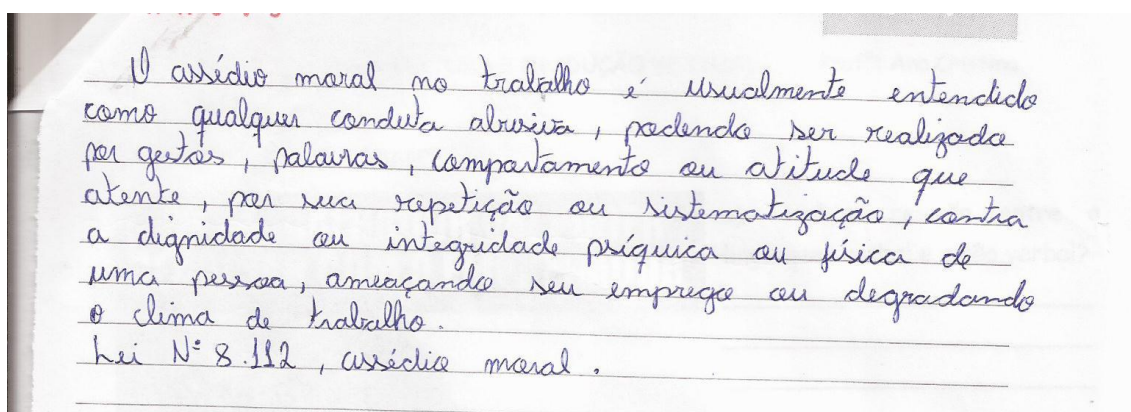 O assédio moral no trabalho é usualmente entendido
como qualquer conduta abusiva, podendo ser realizada
por gestos, palavras, comportamento ou atitude que
atente, por sua repetição ou sistematização, contra
a dignidade ou integridade psíquica ou física de
uma pessoa, ameaçando seu emprego ou degradando
o clima de trabalho.
Lei Nº 8.112, assédio moral.